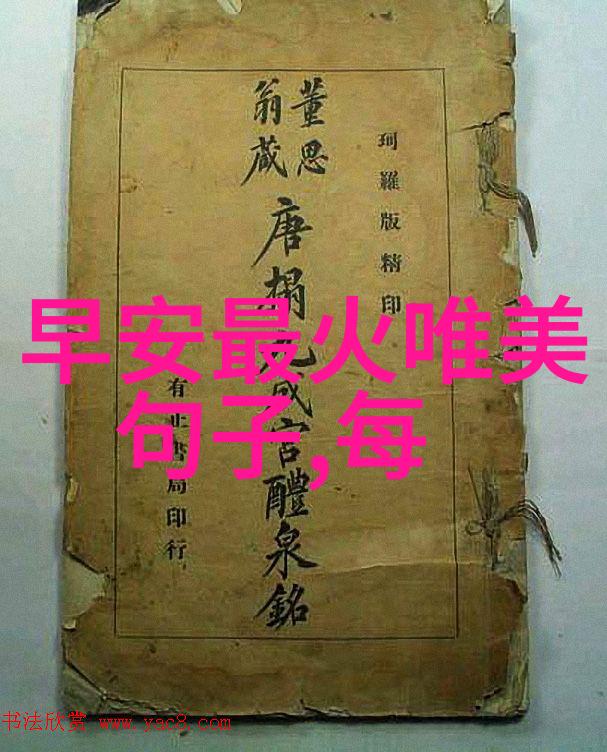 珂羅版精印
董思
翁藏
唐搨九成宮醴泉銘
有正書局印行
早安最火唯美
句子,每
书法欣赏 www.yac8.com